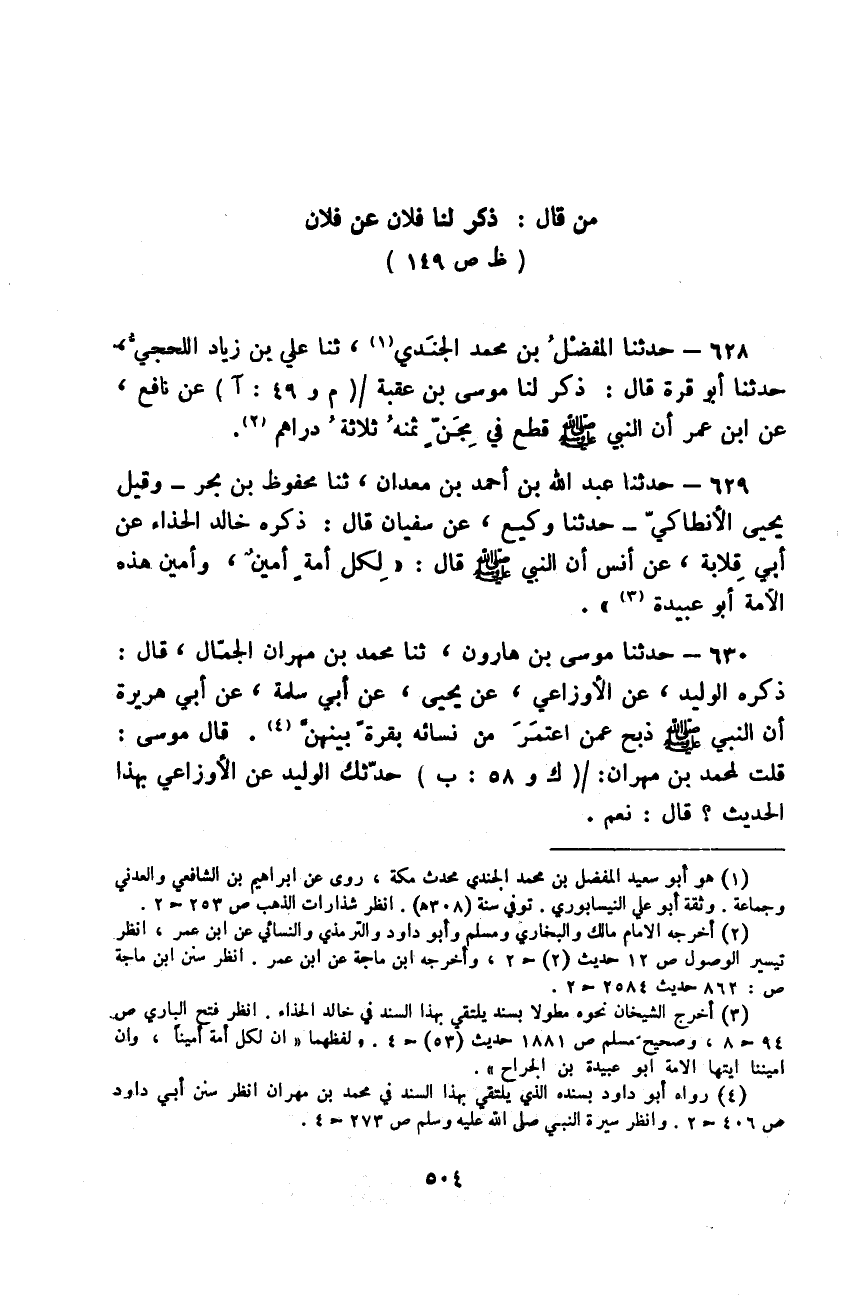 من قال : ذكر لنا فلان عن فلان
( ظ ص ١٤٩ )
٦٢٨ – حدثنا المفضلُ بن محمد الجنَدي(١) ، ثنا علي بن زياد اللحجي ،
حدثنا أبو قرة قال : ذكر لنا موسى بن عقبة /( م و ٤٩ : آ ) عن نافع ،
عن ابن عمر أن النبي ﷺ قطع في مِجَنٍّ ثمنهُ ثلاثةُ دراهم (٢).
٦٢٩ – حدثنا عبد الله بن أحمد بن معدان ، ثنا محفوظ بن بحر – وقيل
يحيى الأنطاكيّ – حدثنا وكيع ، عن سفيان قال : ذكره خالد الحذاء عن
أبي قِلابة ، عن أنس أن النبي ﷺ قال : « لِكل أمةٍ أمينٌ ، وأمين هذه
الأمة أبو عبيدة (٣) » .
٦٣٠ – حدثنا موسى بن هارون ، ثنا محمد بن مهران الجمّال ، قال :
ذكره الوليد ، عن الأوزاعي ، عن يحيى ، عن أبي سلمة ، عن أبي هريرة
أن النبي ﷺ ذبح عمن اعتمَرَ من نسائه بقرةً بينهنّ (٤) . قال موسى :
قلت لمحمد بن مهران: /( ك و ٥٨ : ب ) حدّثك الوليد عن الأوزاعي بهذا
الحديث ؟ قال : نعم .
(١) هو أبو سعيد المفضل بن محمد الجندي محدث مكة ، روى عن ابراهيم بن الشافعي والعدني
وجماعة . وثقة أبو علي النيسابوري . توفي سنة (٣٠٨ه) . انظر شذارات الذهب ص ٢٥٣ ح ٢ .
(٢) أخرجه الامام مالك والبخاري ومسلم وأبو داود والترمذي والنسائي عن ابن عمر ، انظر
تيسير الوصول ص ١٢ حديث (٢) ح ٢ ، وأخرجه ابن ماجة عن ابن عمر . انظر سنن ابن ماجة
ص : ٨٦٢ حديث ٢٥٨٤ ح ٢ .
(٣) أخرج الشيخان نحوه مطولا بسند يلتقي بهذا السند في خالد الحذاء . انظر فتح الباري ص
٩٤ ح ٨ ، وصحيح مسلم ص ١٨٨١ حديث (٥٣) ح ٤ . ولفظهما « ان لكل أمة أميناً ، وان
اميننا ايتها الامة ابو عبيدة بن الجراح » .
(٤) رواه أبو داود بسنده الذي يلتقي بهذا السند في محمد بن مهران انظر سنن أبي داود
ص ٤٠٦ ح ٢ . وانظر سيرة النبي صلى الله عليه وسلم ص ٢٧٣ ح ٤ .
٥٠٤